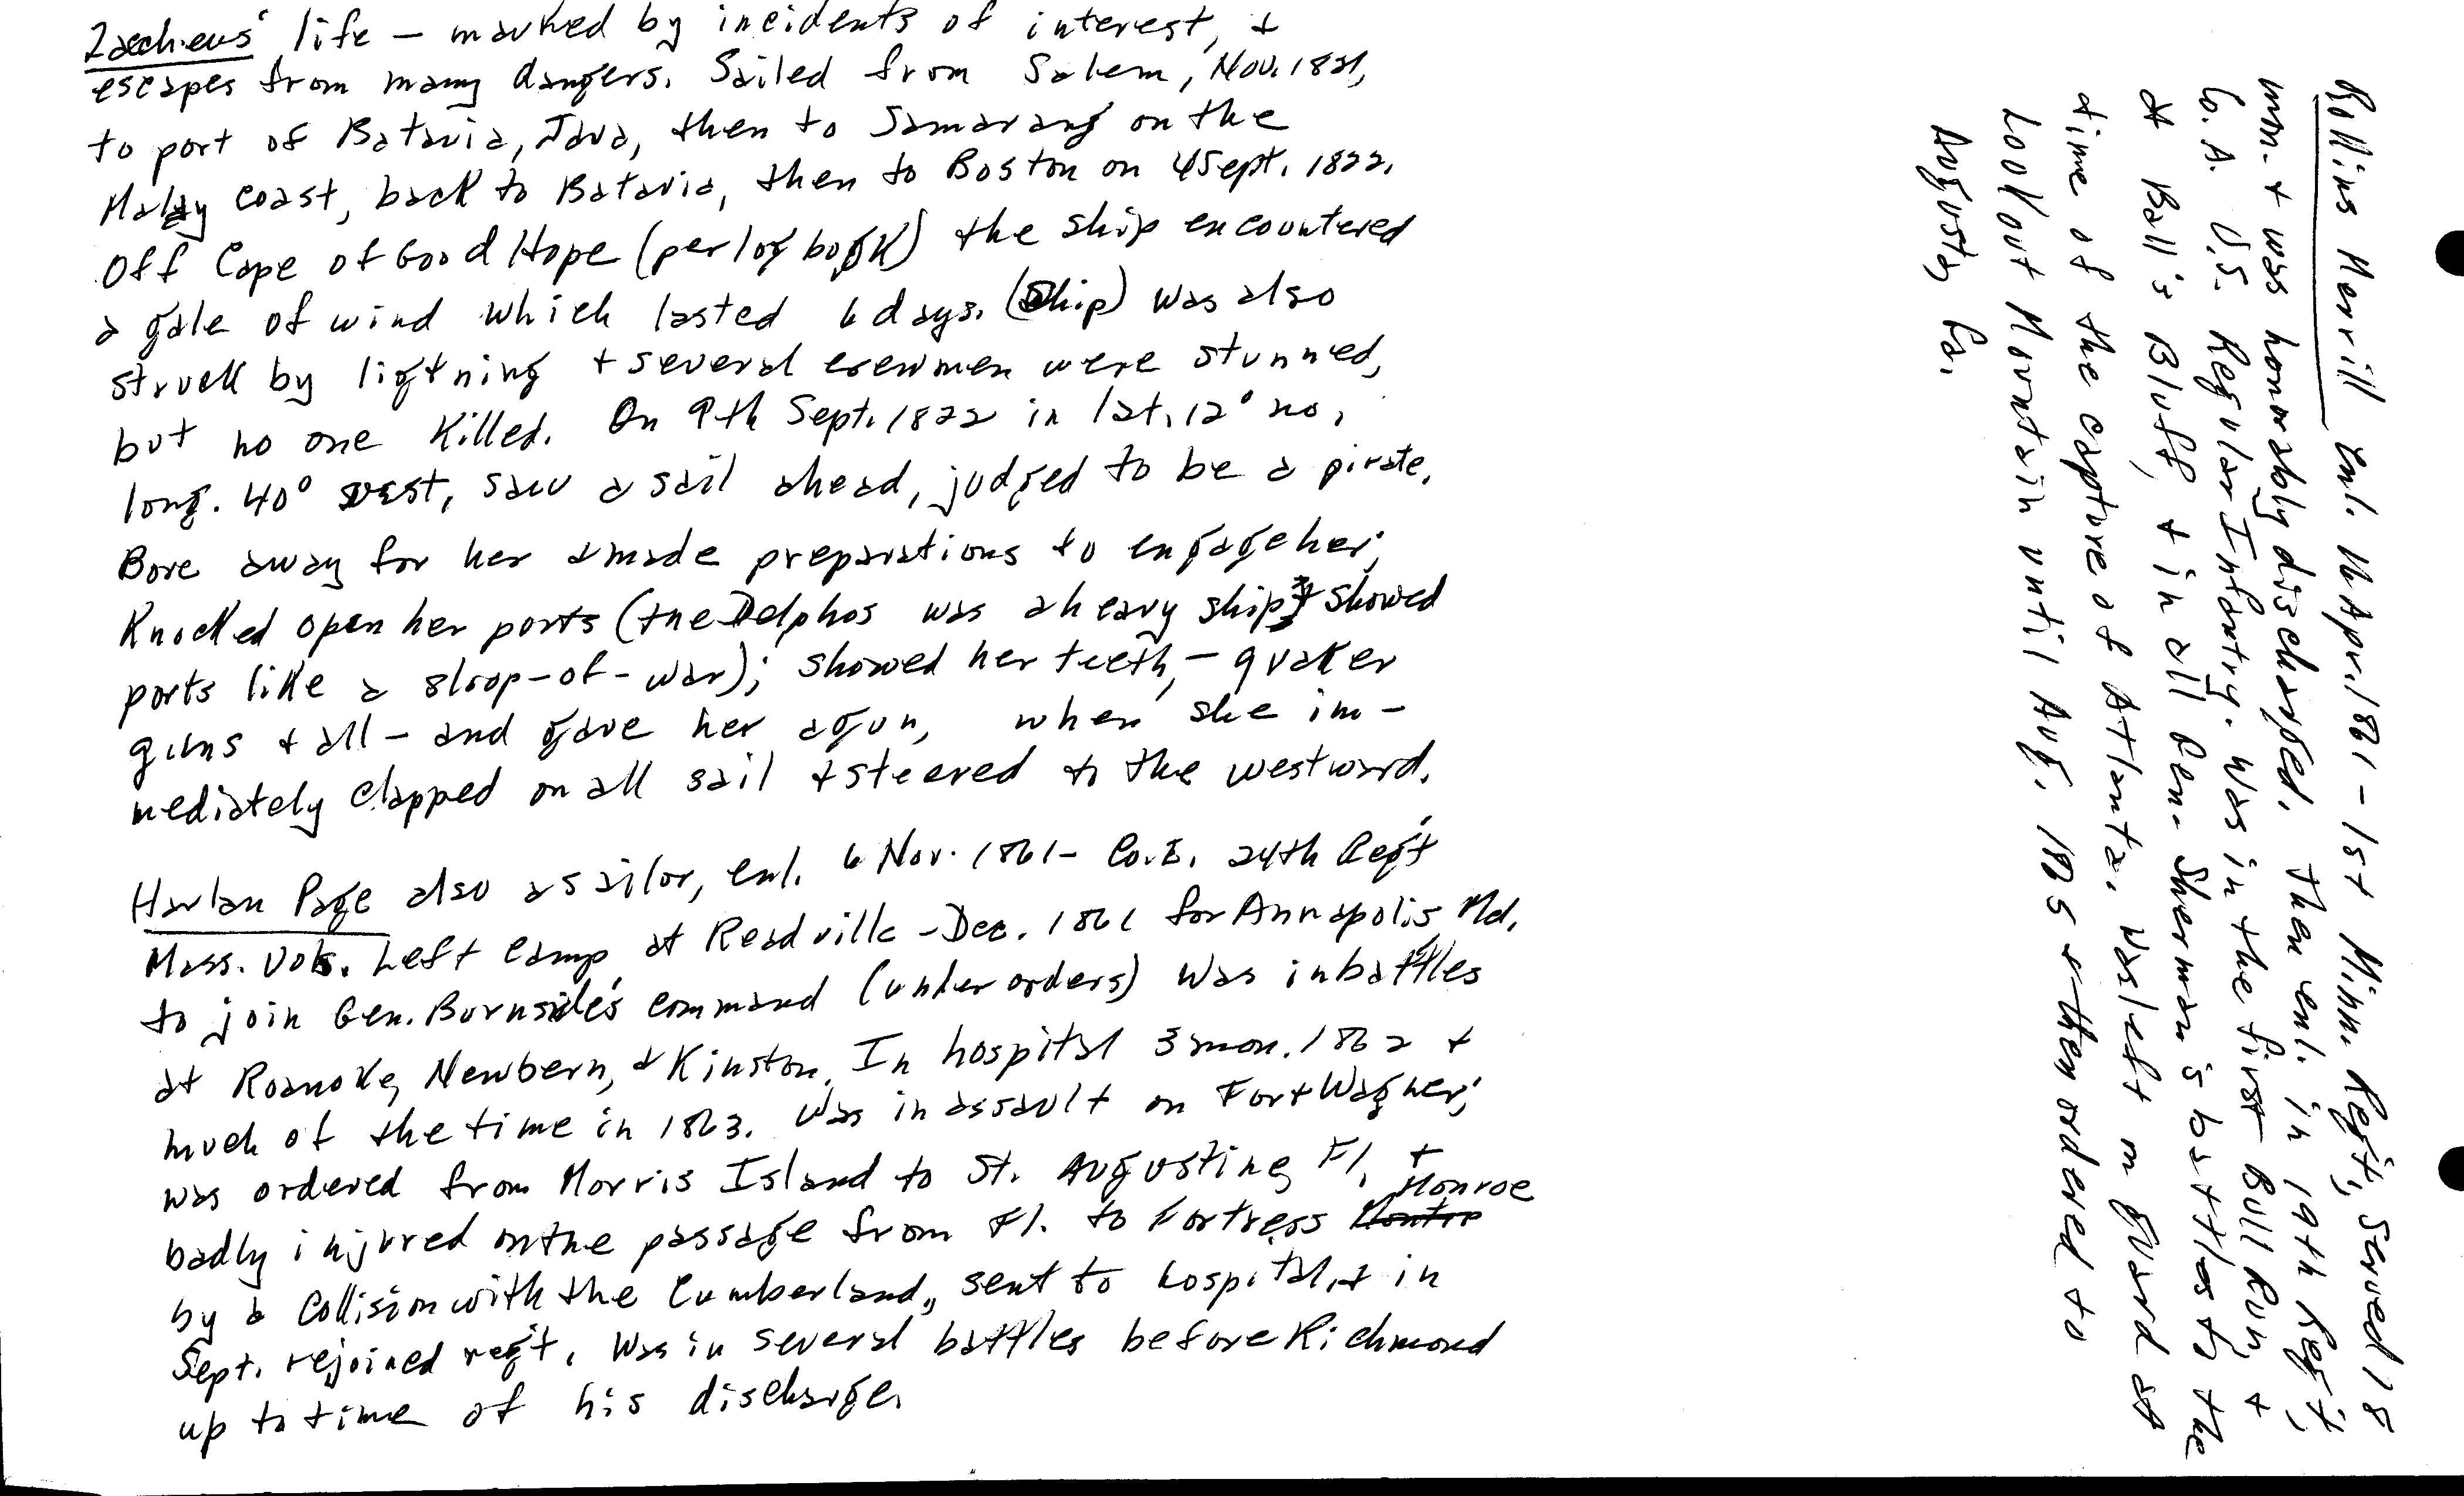 Zaccheus' life – marked by incidents of interest, +
escapes from many dangers. Sailed from Salem, Nov. 1821,
to port of Batavia, Java, then to Samarang on the
Malay coast, back to Batavia, then to Boston on 4 Sept. 1822.
Off Cape of Good Hope (per log book) the ship encountered
a gale of wind which lasted 6 days. (Ship) was also
struck by ligtning + several crewmen were stunned,
but no one killed. On 9th Sept. 1822 in lat. 12° no,
long. 40° west, saw a sail ahead, judged to be a pirate.
Bore away for her + made preparations to engage her;
Knocked open her ports (the Delphos was a heavy ship + showed
ports like a sloop-of-war); showed her teeth, – quaker
guns + all – and gave her a gun, when she im-
mediately clapped on all sail + steered to the westward.
Harlan Page also a sailor, enl. 6 Nov. 1861 – Co. E. 24th Reg't
Mass. Vols. Left camp at Readville – Dec. 1861 for Annapolis, Md.
to join Gen. Burnside's command (under orders) Was in battles
at Roanoke, Newbern, + Kinston. In hospital 3 mon. 1862 +
much of the time in 1863. Was in assault on Fort Wagner;
was ordered from Morris Island to St. Augustine, Fl. +
badly injured on the passage from Fl. to Fortress Monroe
by a collision with the Cumberland, sent to hospital, + in
Sept. rejoined reg't. Was in several battles before Richmond
up to time of his discharge.
Rollins Merrill enl. 16 Apr. 1861 – 1st Minn. Reg't, Served 18
mon. + was honorably discharged. Then enl. in 19th Reg't,
Co. A. U.S. Regular Infantry. Was in the first Bull Run, +
at Ball's Bluff, + in all Gen. Sherman's battles to the
time of the capture of Atlanta. Was left on guard at
Lookout Mountain until Aug. 1865 + then ordered to
Augusta, Ga.